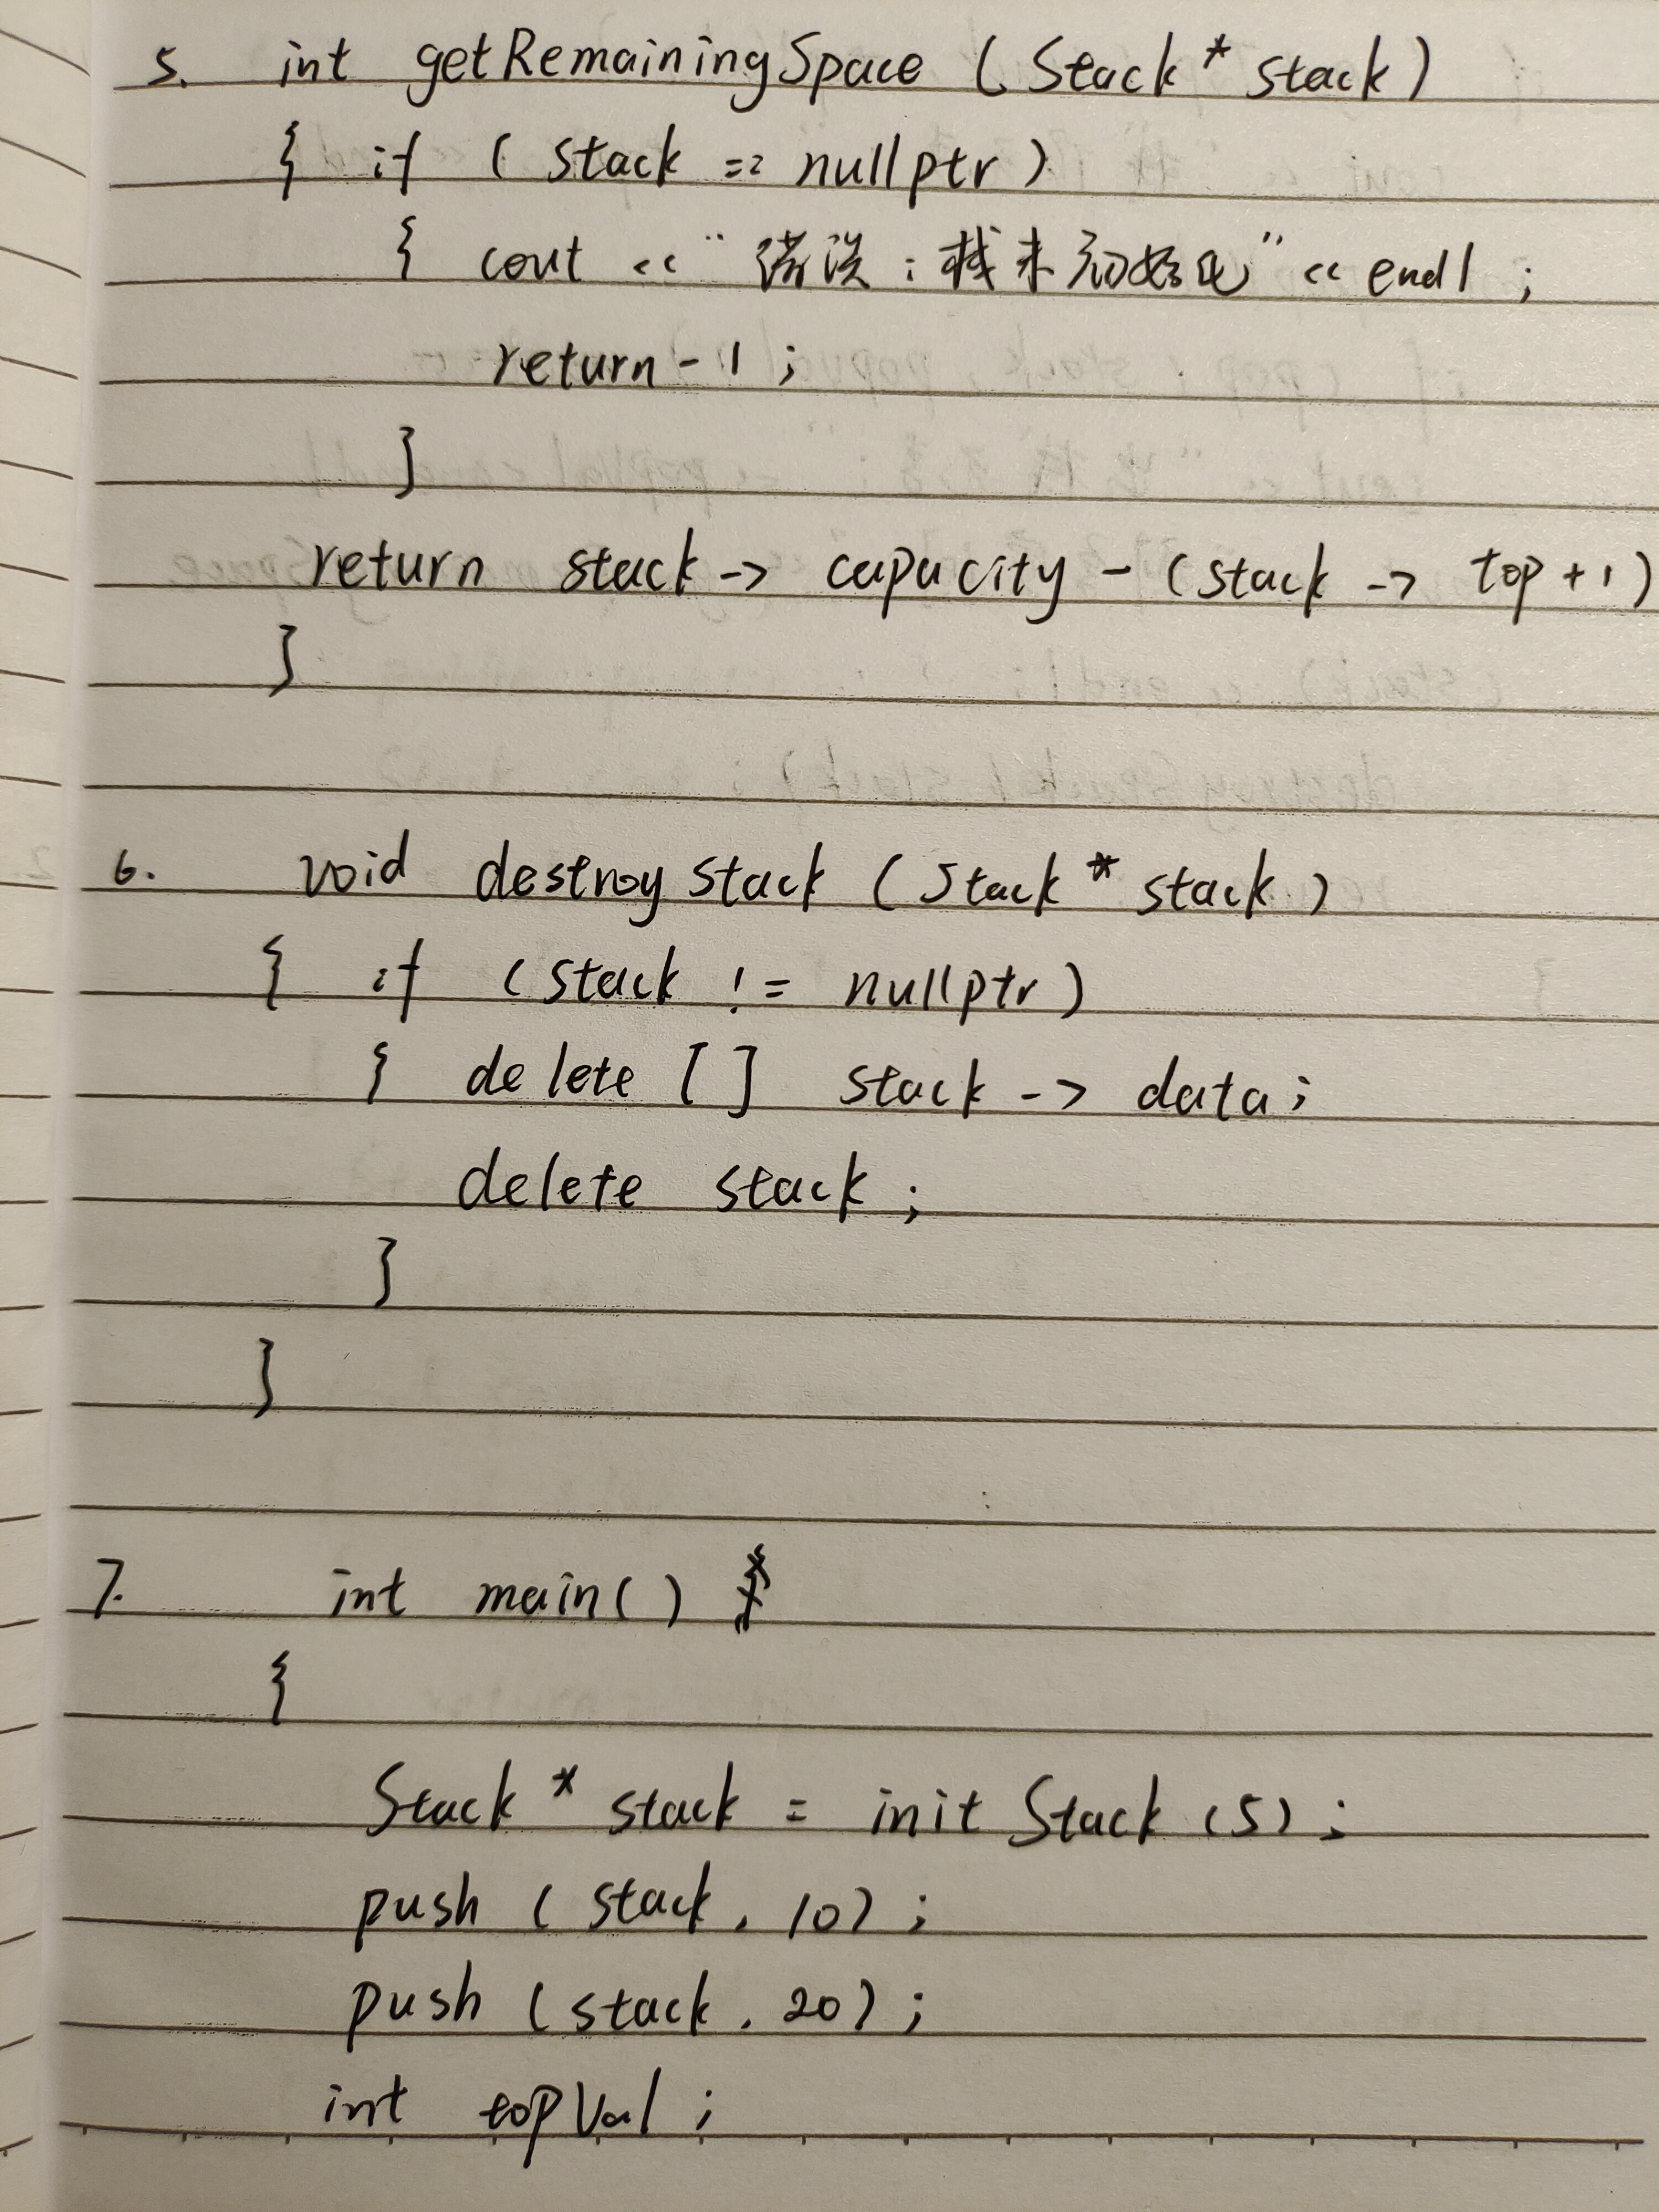 5. int getRemainingSpace (Stack * stack)
{ if ( stack == nullptr )
{ cout << "错误：栈未初始化" << endl ;
return -1 ;
}
return stack -> capacity - (stack -> top + 1)
}
6. void destroy stack (Stack * stack )
{ if (stack != nullptr)
{ delete [ ] stack -> data ;
delete stack ;
}
}
7. int main ( )
{
Stack * stack = init Stack (5) ;
push ( stack , 10 ) ;
push ( stack , 20 ) ;
int topVal ;